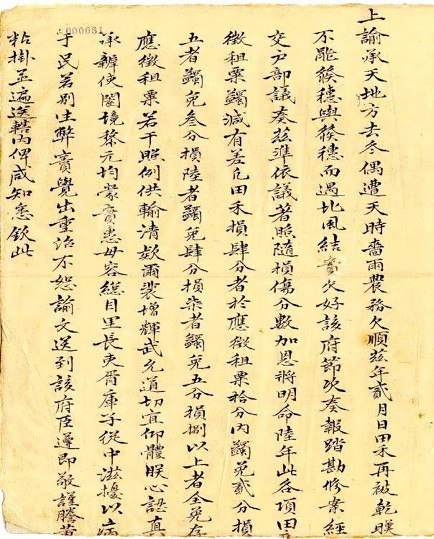 上諭承天地方去冬偶遭天時嗇雨農務欠順玆年貳月日田禾再被乾暵
不能發穗與發穗而遇北風結實欠好該府節次奏報踏勘修案經
交户部議奏玆準依議著照隨損傷分數加恩將明命陸年此各項田
徵租粟蠲減有差凡田禾損肆分者於應徵租粟拾分內蠲免貳分損
五者蠲免叁分損陸者蠲免肆分損柒者蠲免五分損捌以上者全免存
應徵租粟若干照例供輸清欵爾裴增輝武允道切宜仰體朕心認真
承辦使闔境黎元均蒙實惠毋容總目里長吏胥庫子從中滋擾以病
于民若別生弊竇覺出重治不恕諭文送到該府臣遵即敬謹謄黃
粘掛並遍送轄內俾咸知悉欽此